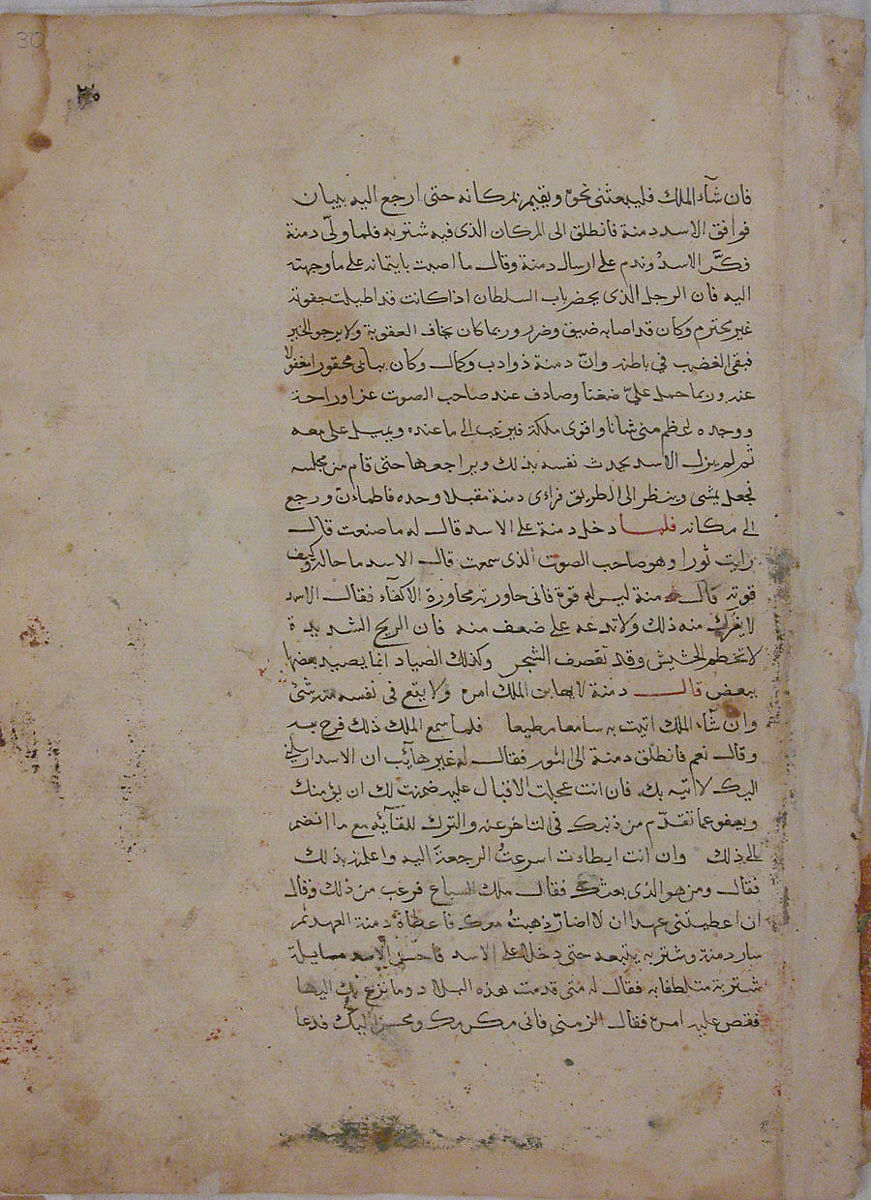 فان شآء الملك فليبعثنى نحوه ويقيم بمكانه حتى ارجع اليه ببيان
فوافق الاسد دمنة فانطلق الى المكان الذى فيه شتربه فلما ولّى دمنة
فكّر الاسد وندم على ارسال دمنة وقال ما اصبت بايتمانه على ما وجهته
اليه فان الرجل الذى يحضر باب السلطان اذا كانت قد اطيلت جفوته
غير محترم وكان قد اصابه ضيق وضرر وربما كان يخاف العقوبة ولا يرجو الخير
فبقى الغضب في باطنه وانّ دمنة ذو ادب وكمال وكان ببابى محقورا مغفولا
عنه وربما حمل علىّ ضغنا وصادف عند صاحب الصوت عزا وراحة
ووجده اعظم منى شانا واقوى ملكة فيرغب الى ما عنده ويميل على معه
ثم لم يزل الاسد يحدث نفسه بذلك ويراجعها حتى قام من مجلسه
فجعل يمشى وينظر الى الطريق فراءى دمنة مقبلا وحده فاطماءنّ ورجع
الى مكانه فلما دخل دمنة على الاسد قال له ما صنعت قال
رايت ثورا وهو صاحب الصوت الذى سمعت قال الاسد ما حاله وكيف
قوته قال دمنة ليس له قوة فانى حاورته محاورة الاكفآء فقال الاسد
لا يغرك منه ذلك ولا تدعه على ضعف منه فان الريح الشديدة
لا تحطم الحشيش وقد تقصف الشجر وكذلك الصياد انما يصيد بعضها
ببعض قال دمنة لا يهابن الملك امره ولا يقع فى نفسه منه شئ
وان شآء الملك اتيت به سامعا مطيعا فلما سمع الملك ذلك فرح به
وقال نعم فانطلق دمنة الى الثور فقال له غير هآئب ان الاسد ارسلنى
اليك لاتيه بك فان انت عجلت الاقبال عليه ضمنت لك ان يؤمنك
ويعفو عما تقدّم من ذنبك فى التاخر عنه والترك للقآئه مع ما انضم
الى ذلك وان انت ابطاءت اسرعتُ الرجعة اليه واعلمته بذلك
فقال ومن هو الذى بعثك فقال ملك السباع فرعب من ذلك وقال
ان اعطيتنى عهدا ان لا اضارّ ذهبتُ معك فاعطاه دمنة العهد ثم
سار دمنة وشتربه يتبعه حتى دخلا على الاسد فاحسن الاسد مسايلة
شتربة متلطفا به فقال له متى قدمت هذه البلاد وما نزع بك اليها
فقص عليه امره فقال الزمنى فانى مكرمك ومحسن اليك فدعا